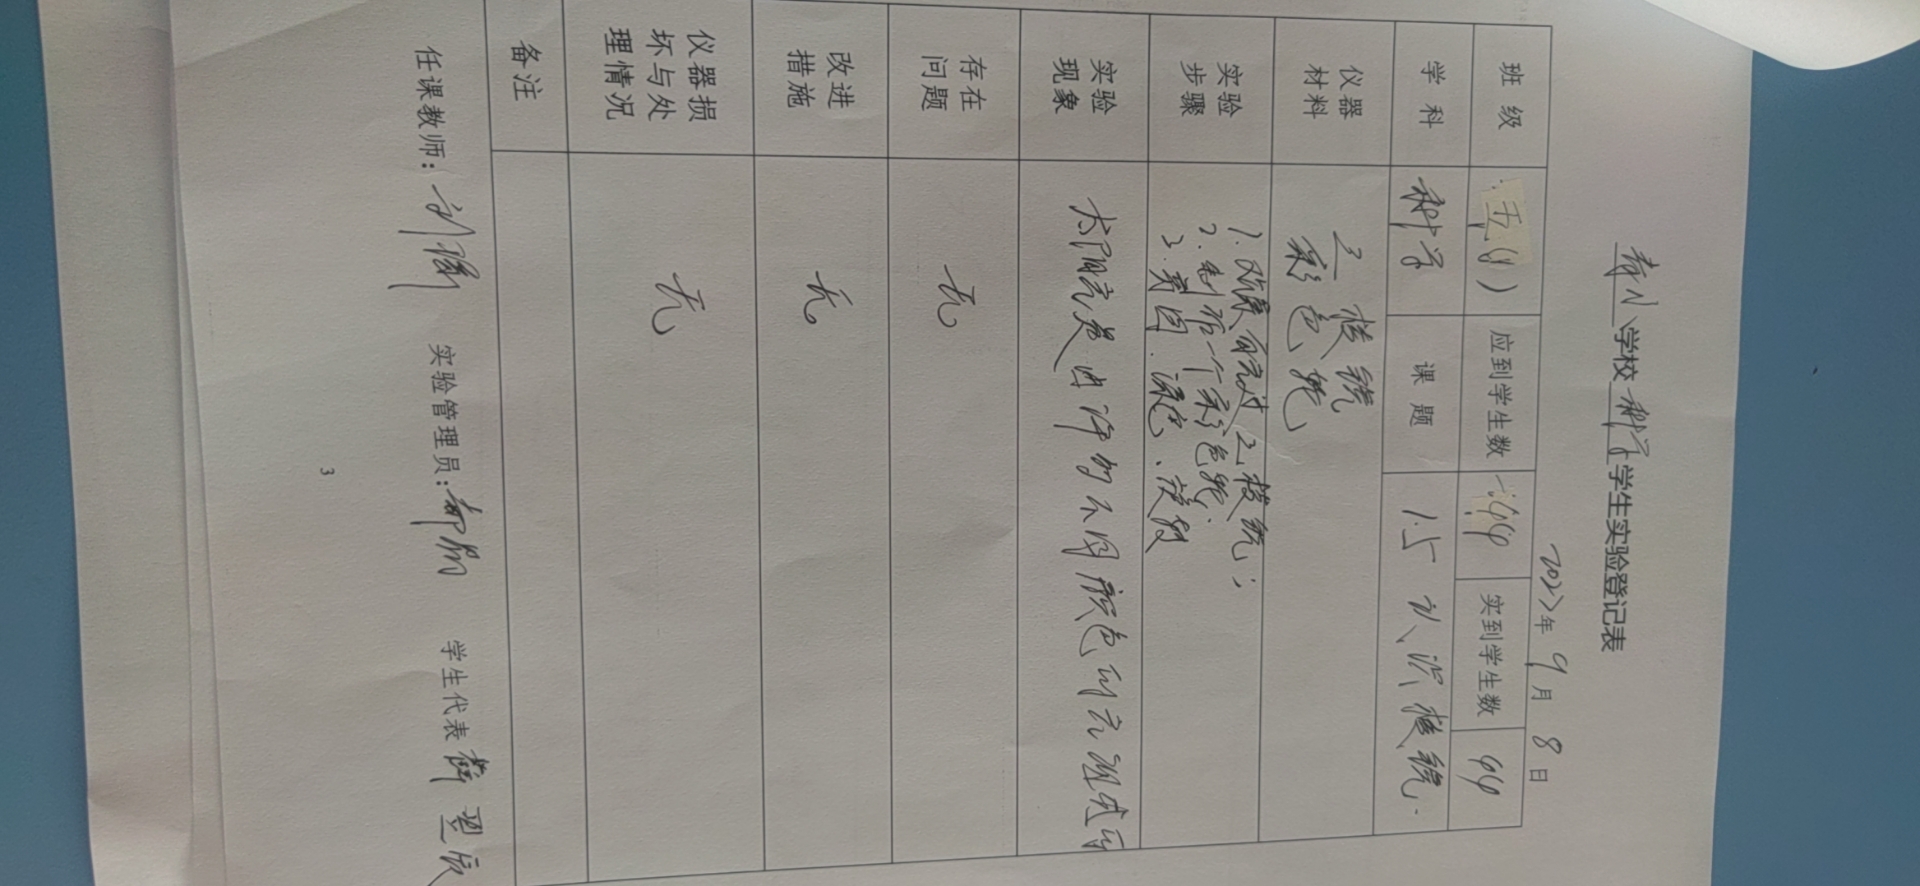 学校科学学生实验登记表
2022年9月8日
班级 五(1) 应到学生数 44 实到学生数 44
学科 科学 课题 1.5 认识棱镜
仪器材料 三棱镜
彩色轮
实验步骤 1.观察 三棱镜;
2.制作一个彩色轮;
3.
实验现象 太阳光是由许多不同颜色的光组成的
存在问题 无
改进措施 无
仪器损坏与处理情况 无
备注
任课教师: 实验管理员: 学生代表
3